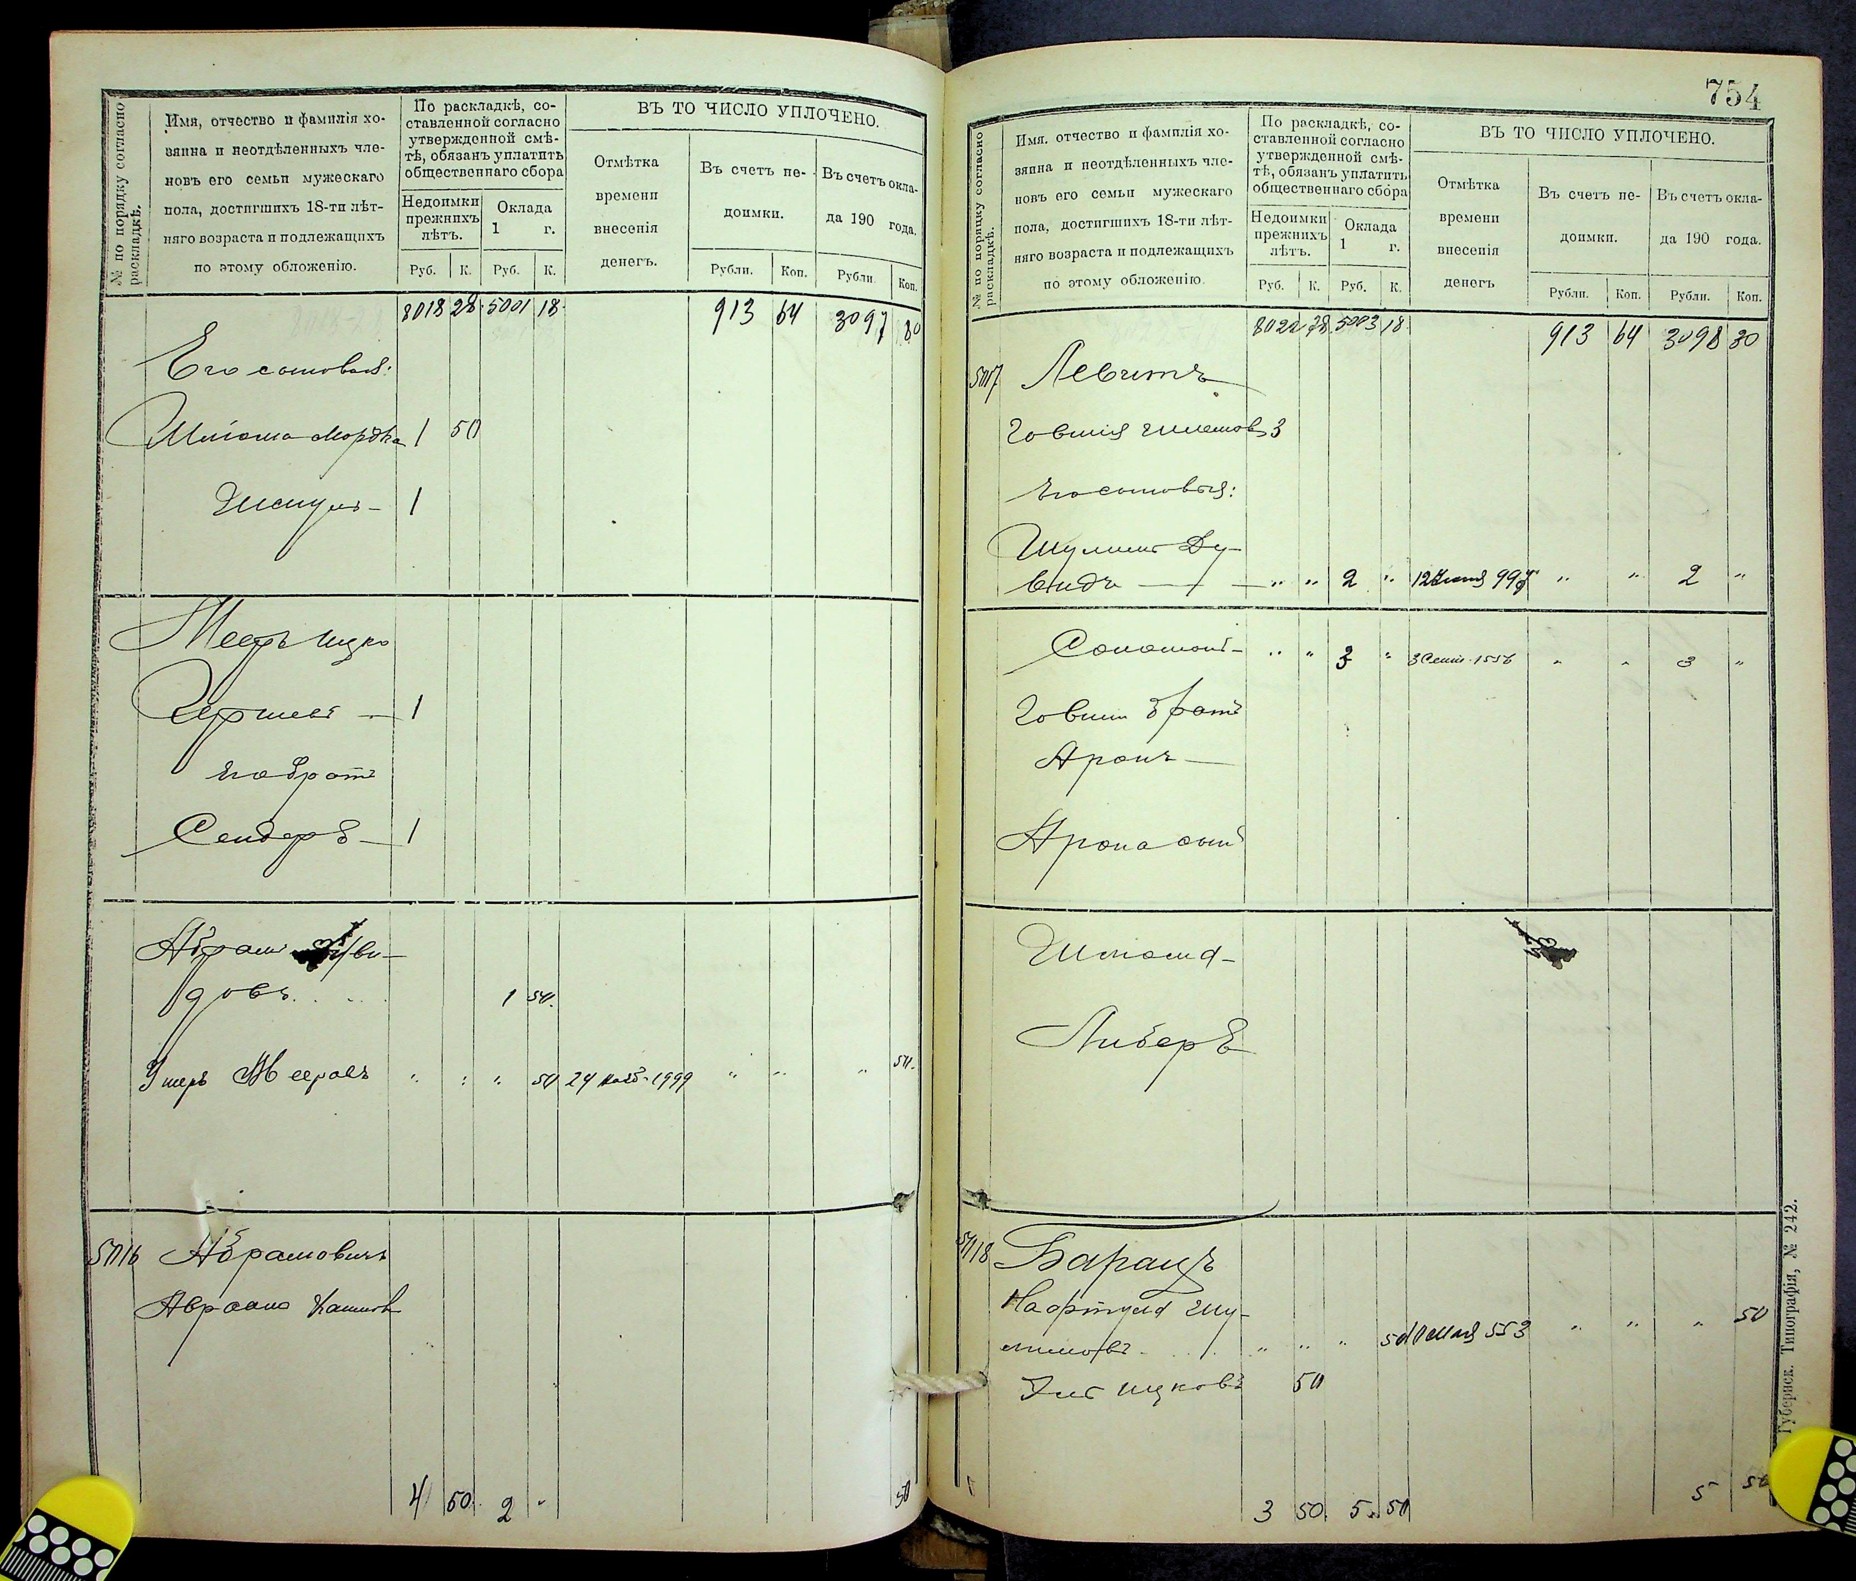 № по порядку согласно раскладкѣ.
Имя, отчество и фамилія хо-
зяина и неотдѣленныхъ чле-
новъ его семьи мужескаго
пола, достигшихъ 18-ти лѣт-
няго возраста и подлежащихъ
по этому обложенію.
По раскладкѣ, со-
ставленной согласно
утвержденной смѣ-
тѣ, обязанъ уплатить
общественнаго сбора
Недоимки
прежнихъ
лѣтъ.
Оклада
1 г.
Руб. К. Руб. К.
ВЪ ТО ЧИСЛО УПЛОЧЕНО.
Отмѣтка
времени
внесенія
денегъ.
Въ счетъ не-
доимки.
Въ счетъ окла-
да 190 года.
Рубли. Коп. Рубли Коп.
8018 28 5001 18 913 64 3097 80
Его сыновья:
Шліома Мордка 1 50
1
Мееръ Ицко
Гершевъ 1
его братъ
Сендеръ 1
Абрам
довъ 1 50
Мееровъ " " " 50 24 1999 " " " 50
5016 Абрамовичъ
4 50 2 " 50
754
№ по порядку согласно раскладкѣ.
Имя. отчество и фамилія хо-
зяина и неотдѣленныхъ чле-
новъ его семьи мужескаго
пола, достигшихъ 18-ти лѣт-
няго возраста и подлежащихъ
по этому обложенію
По раскладкѣ, со-
ставленной согласно
утвержденной смѣ-
тѣ, обязанъ уплатить
общественнаго сбора
Недоимки
прежнихъ
лѣтъ.
Оклада
1 г.
Руб. К. Руб. К.
ВЪ ТО ЧИСЛО УПЛОЧЕНО.
Отмѣтка
времени
внесенія
денегъ
Въ счетъ не-
доимки.
Въ счетъ окла-
да 190 года.
Рубли. Коп. Рубли. Коп.
8022 78 5003 18 913 64 3098 30
5017 Левитъ
Говшія 3
Его сыновья:
Шулимъ Ду-
видъ " " 2 " 12 " " 2 "
Соломонъ " " 3 " 3 Сент. 1556 " " 3 "
Говши братъ
Аронъ
Арона сынъ
Либеръ
5018 Баранъ
Нафтула Шу-
лимовъ " " " 50 10 Мая 553 " " " 50
Ицковъ 50
3 50 5 50 5 50
Губернск. Типографія, № 242.